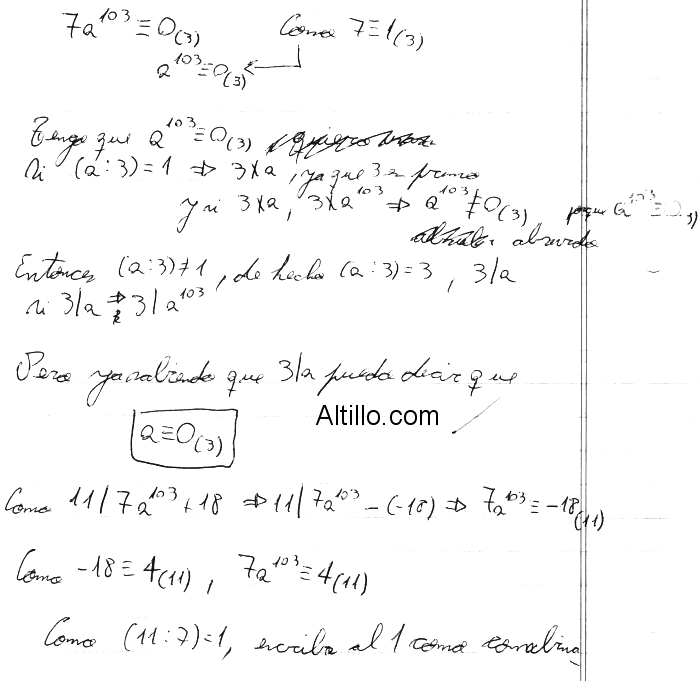 7a¹⁰³ ≡ 0(3) Como 7 ≡ 1(3)
a¹⁰³ ≡ 0(3)
Tengo que a¹⁰³ ≡ 0(3)
si (a:3)=1 ⇒ 3∤a, ya que 3 es primo
y si 3∤a, 3∤a¹⁰³ ⇒ a¹⁰³ ≢ 0(3) porque a¹⁰³ ≡ 0(3)
absurdo
Entonces (a:3)≠1, de hecho (a:3)=3, 3|a
si 3|a ⇒ 3|a¹⁰³
Pero ya sabiendo que 3|a puedo decir que
Altillo.com
a ≡ 0(3)
Como 11 | 7a¹⁰³+18 ⇒ 11 | 7a¹⁰³ - (-18) ⇒ 7a¹⁰³ ≡ -18(11)
Como -18 ≡ 4(11), 7a¹⁰³ ≡ 4(11)
Como (11:7)=1, escribo al 1 como combina